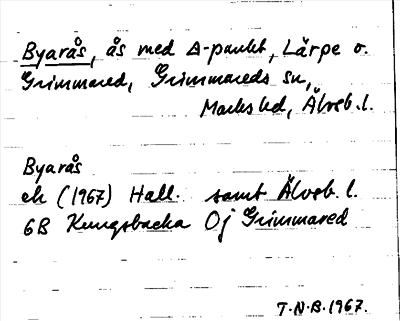 Byarås, ås med Δ-punkt, Lärpe o.
Grimmared, Grimmareds sn,
Marks hd, Älvsb. l.
Byarås
ek (1967) Hall. samt Älvsb. l.
6B Kungsbacka 0j Grimmared
T.N.B. 1967.